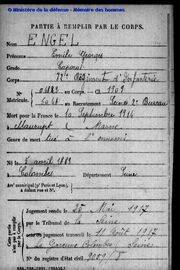 © Ministère de la défense - Mémoire des hommes
PARTIE À REMPLIR PAR LE CORPS.
Nom ENGEL
Prénoms Emile Georges
Grade Caporal
Corps 72e Régiment d'Infanterie
N° au Corps. — Cl. 1909
Matricule. au Recrutement Seine 2e Bureau
Mort pour la France le 10 Septembre 1914
à Maurupt (Marne)
Genre de mort tué à l'ennemi
Né le avril 1889
à Colombes Département Seine
Arr' municipal (p' Paris et Lyon),
à défaut rue et N°.
Jugement rendu le 25 Mai 1917
par le Tribunal de la Seine
jugement transcrit le 11 Août 1917
à La Garenne Colombes (Seine)
N° du registre d'état civil